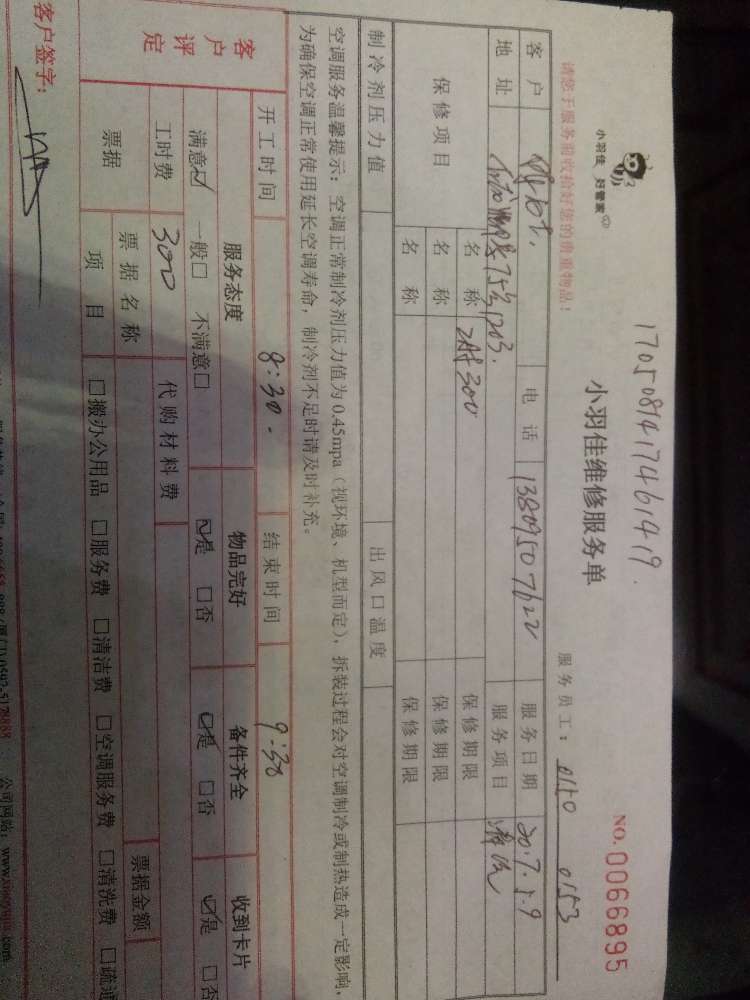 小羽佳 好管家
请您于服务前收拾好您的贵重物品!
1705081417461419.
小羽佳维修服务单
NO. 0066895
服务员工: 0150 0153
客户 电话 13809507622 服务日期 2017.5.9
地址 75号1703. 服务项目 清洗
保修项目 名称 2材300 保修期限
名称 保修期限
名称 保修期限
制冷剂压力值 出风口温度
空调服务温馨提示:空调正常制冷剂压力值为0.45mpa(视环境、机型而定),拆装过程会对空调制冷或制热造成一定影响,
为确保空调正常使用延长空调寿命,制冷剂不足时请及时补充。
开工时间 8:30. 结束时间 9:30
客户评定 服务态度 物品完好 备件齐全 收到卡片
满意☑ 一般□ 不满意□ ☑是 □否 ☑是 □否 ☑是 □否
工时费 300 代购材料费
票据 票据名称 票据金额
项目 □搬办公用品 □服务费 □清洁费 □空调服务费 □清洗费 □疏通
客户签字:
公司网站: